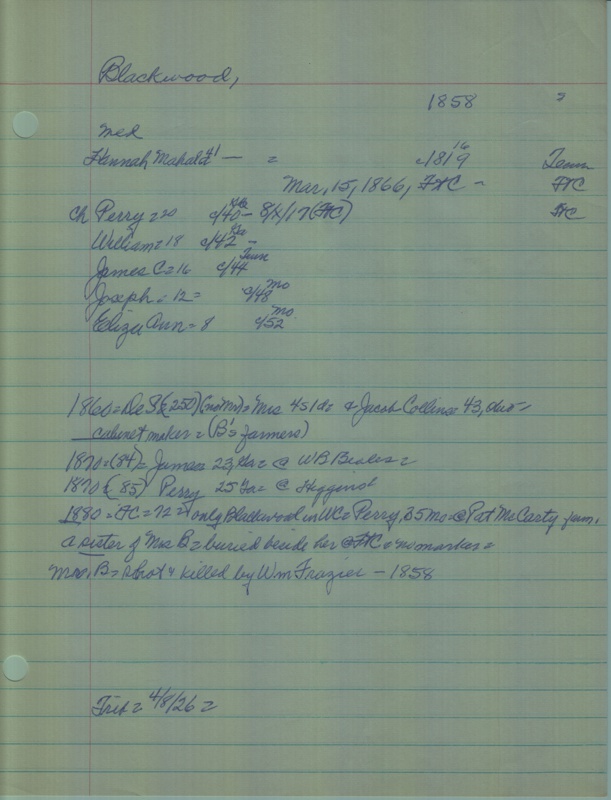 Blackwood,
1858 =
med
Hannah Mahala 41 — = c1819 16 Tenn
Mar, 15, 1866, FHC - FHC
ch Perry = 20 c/40 - 8/4/17 (FHC) FHC
William = 18 c/42 -
James C = 16 c/44 Tenn
Joseph = 12 = c/48 Mo
Eliza Ann = 8 c/52 Mo.
1860 = De Sk (250) (no Mr) = Mrs 45 & Jacob Collins 43,
cabinet maker = (B's farmers)
1870 = (84) = James = 23, = @ WB Beales =
1870 = (85) Perry 25 = @ Higgins
1880 = FC = 72 = only Blackwood in WC = Perry, 35 Mo = @ Pat McCarty fam.
a sister of Mrs B = buried beside her @ FHC = no marker =
Mrs, B = shot & killed by Wm Frazier - 1858
Trib = 4/8/26 =